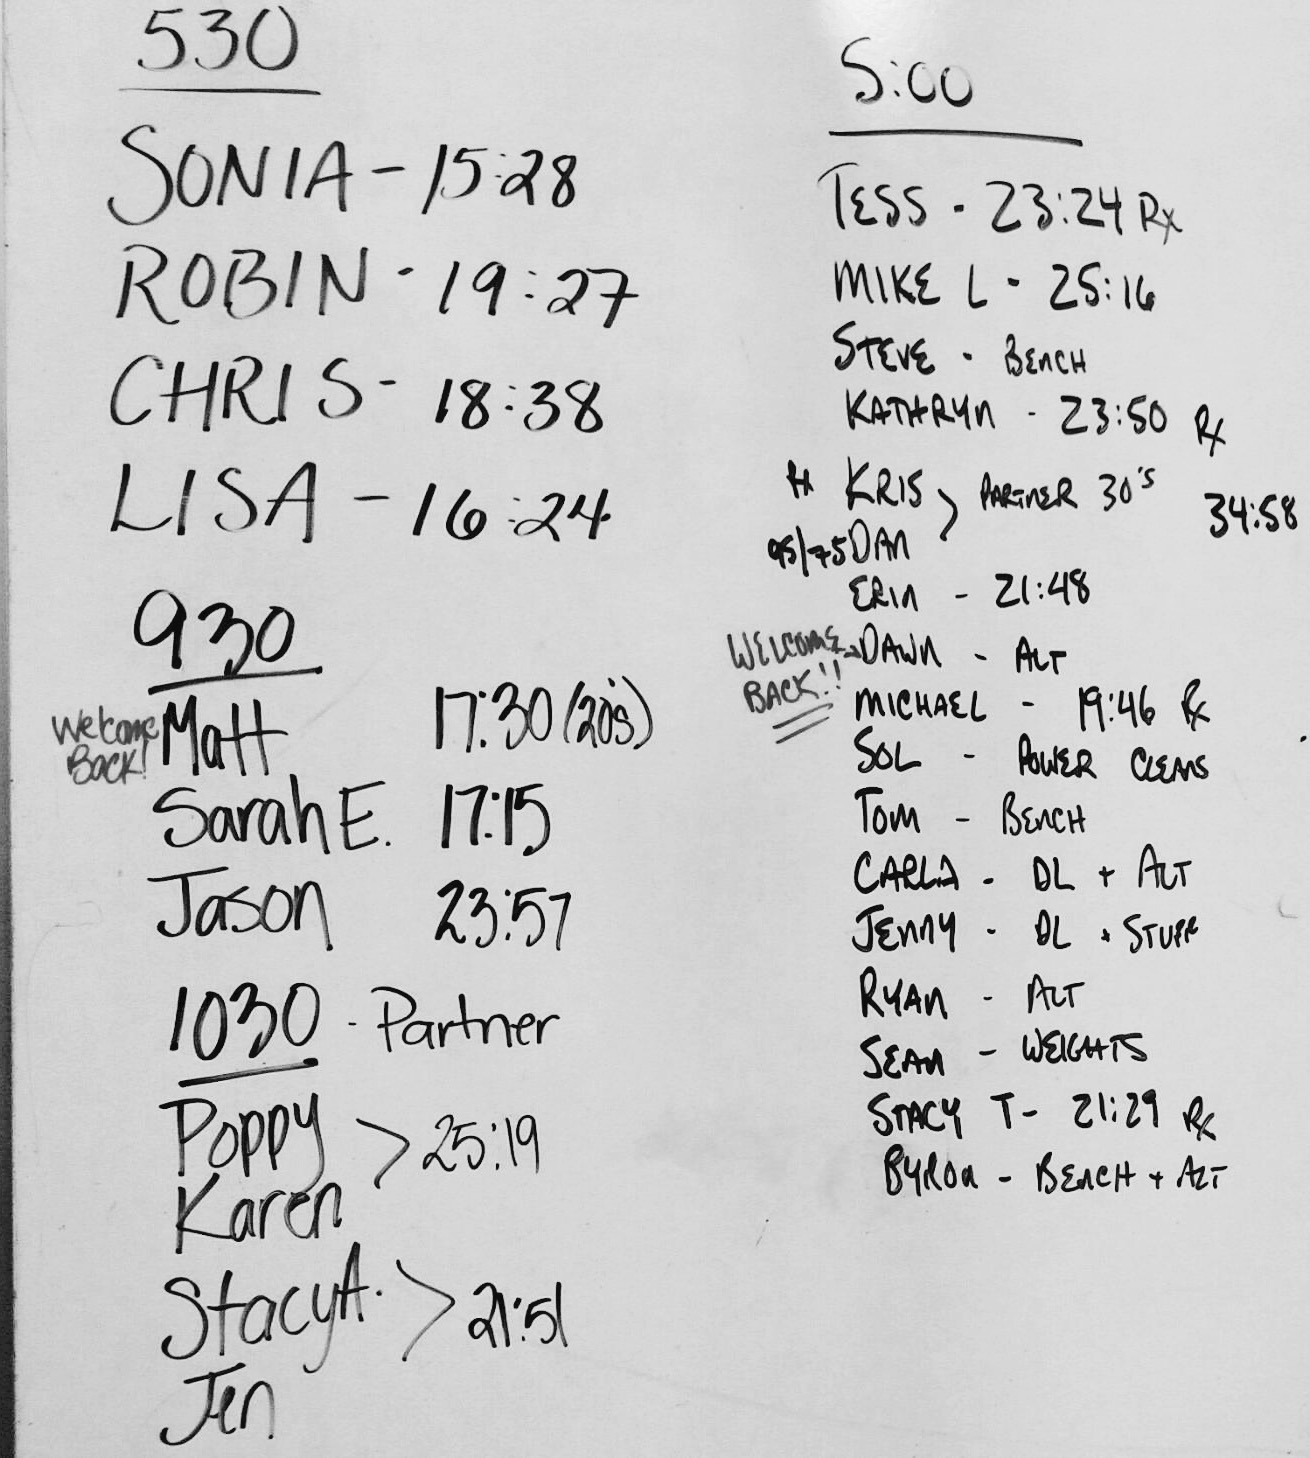 530
SONIA - 15:28
ROBIN - 19:27
CHRIS - 18:38
LISA - 16:24
930
Welcome Back! Matt 17:30 (20's)
Sarah E. 17:15
Jason 23:57
1030 - Partner
Poppy
> 25:19
Karen
Stacy A.
> 21:51
Jen
5:00
TESS - 23:24 Rx
MIKE L - 25:16
STEVE - BENCH
KATHRYN - 23:50 Rx
Rx KRIS
> PARTNER 30's 34:58
95/75 DAN
ERIN - 21:48
WELCOME BACK!! DAWN - ALT
MICHAEL - 19:46 Rx
SOL - POWER CLEANS
TOM - BENCH
CARLA - DL + ALT
JENNY - DL + STUFF
RYAN - ALT
SEAN - WEIGHTS
STACY T - 21:29 Rx
BYRON - BENCH + ALT